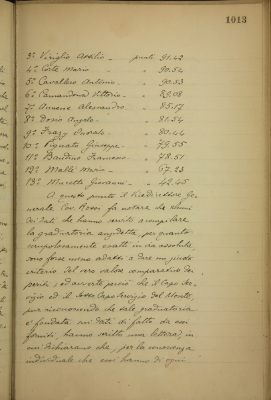 1013
3º Virgilio Attilio - punti 91.42
4º Corte Mario - " 90.54
5º Cavallero Antonio - " 90.33
6º Camandona Vittorio - " 89.08
7º Alessandro - " 85.17
8º Dosio Angelo - " 81.54
9º Osvaldo - " 80.44
10º Pignata Giuseppe - " 79.55
11º Bardino Francesco - " 78.51
12º Malli Mario - " 67.23
13º Giovanni - " 42.45
A questo punto il Vicedirettore Ge-
nerale Cav. Rossi fa notare che alcuni
dei dati che hanno servito a compilare
la graduatoria anzidetta, per quanto
scrupolosamente esatti in via assoluta,
sono forse meno adatti a dare un giusto
criterio del vero valore comparativo dei
periti; ed avverte perciò che il Capo Ser-
vizio ed il Sotto Capo Servizio del Monte,
pur riconoscendo che tale graduatoria
è fondata sui dati di fatto da essi
forniti, hanno scritto una lettera, in
cui dichiarano che, per la conoscenza
individuale che essi hanno di ogni